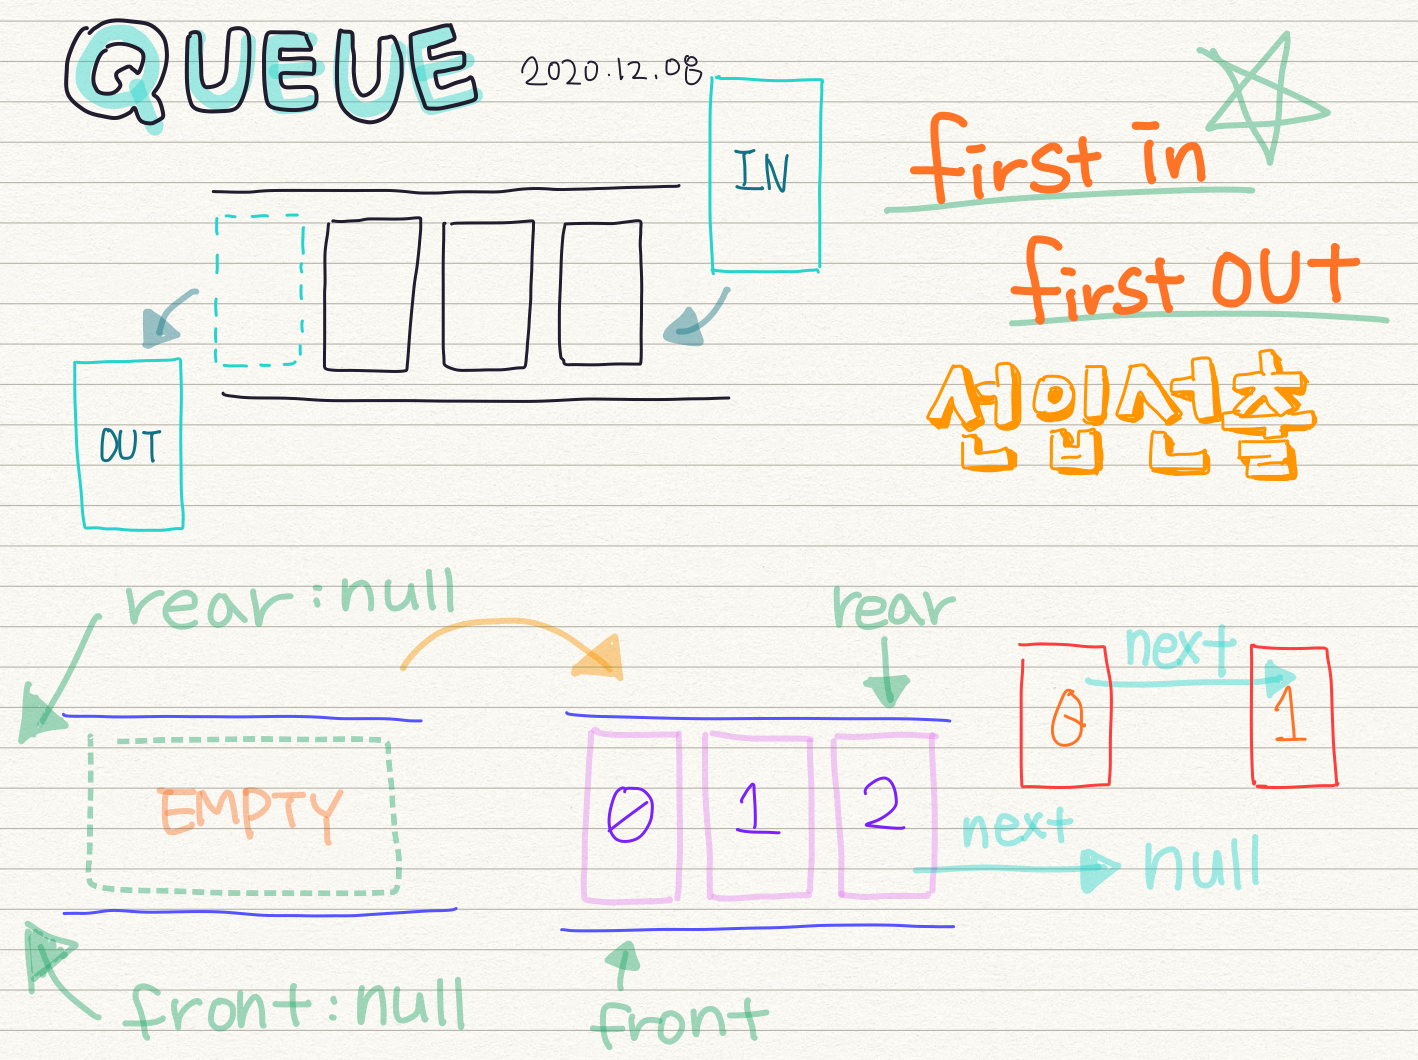 QUEUE
2020.12.08
IN
OUT
first in
first OUT
선입선출
rear : null
EMPTY
front : null
rear
0 1 2
front
next
0 1
next
null